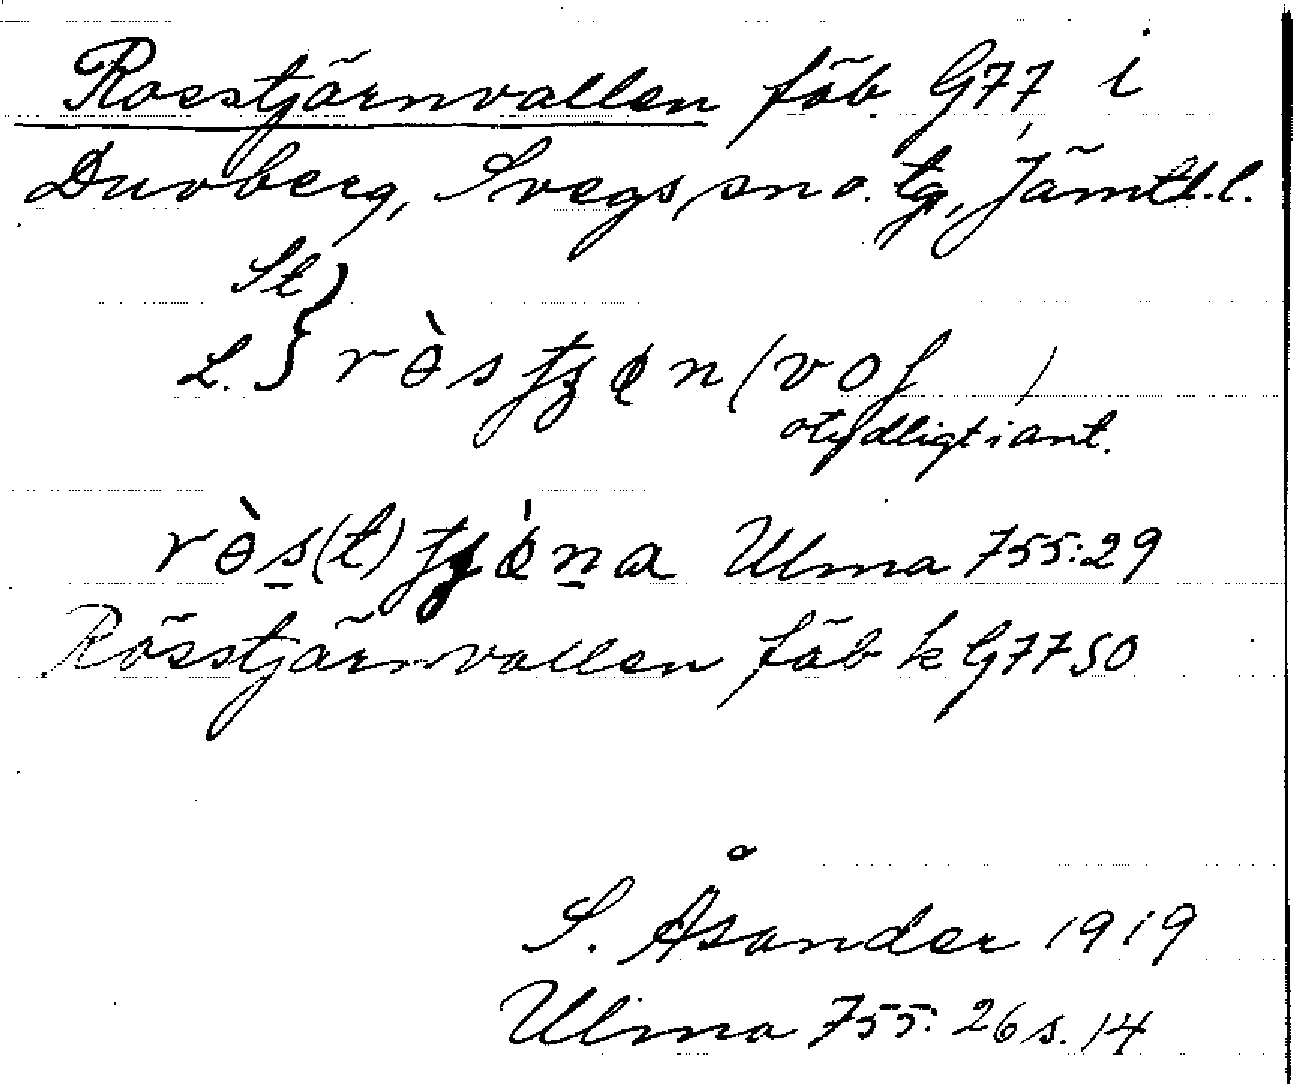 Rosstjärnvallen fäb. G77 i
Duvberg, Svegs sn o. tg, Jämtl. l.
St
L. } rə̀s n (vo )
otydligt i ant.
rə̀s(t) na Ulma 755:29
Rösstjärnvallen fäb k G77 SO
S. Åsander 1919
Ulma 755: 26 s. 14